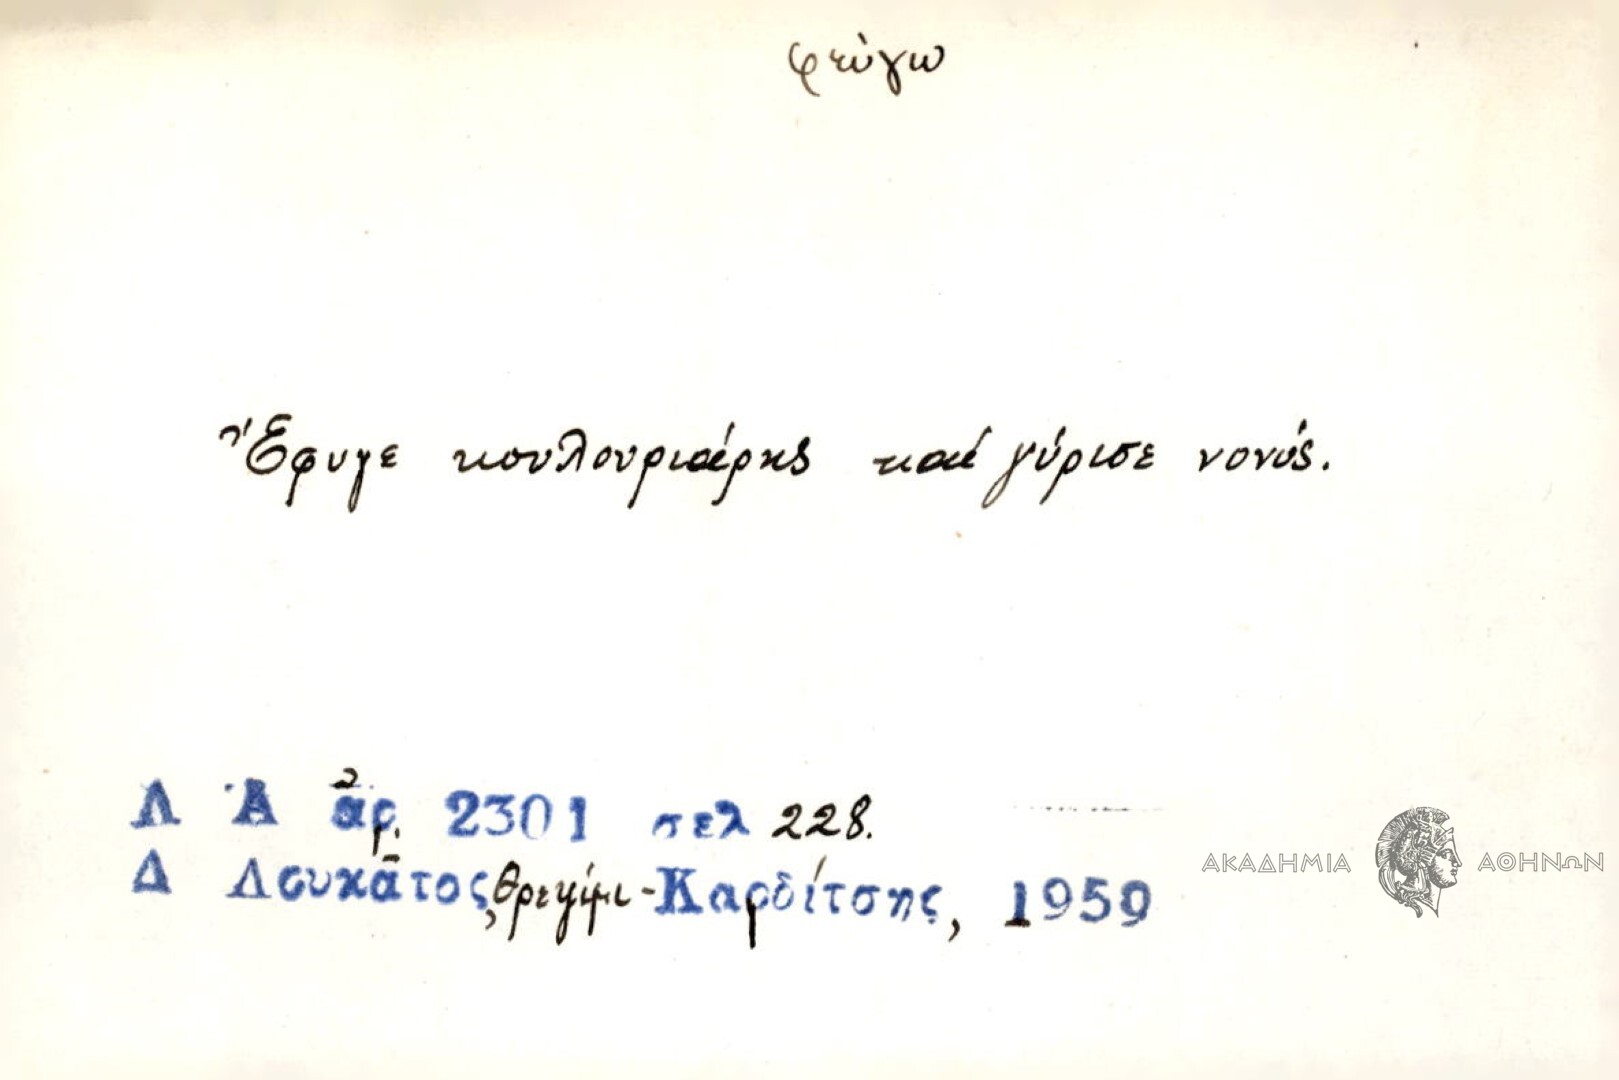 φεύγω
Ἔφυγε κουλουριάρης καί γύρισε νονός.
Λ Ἀ ἀρ. 2301 σελ 228.
Δ Λουκᾶτος, Θρεψίμι-Καρδίτσης, 1959
ΑΚΑΔΗΜΙΑ ΑΘΗΝΩΝ